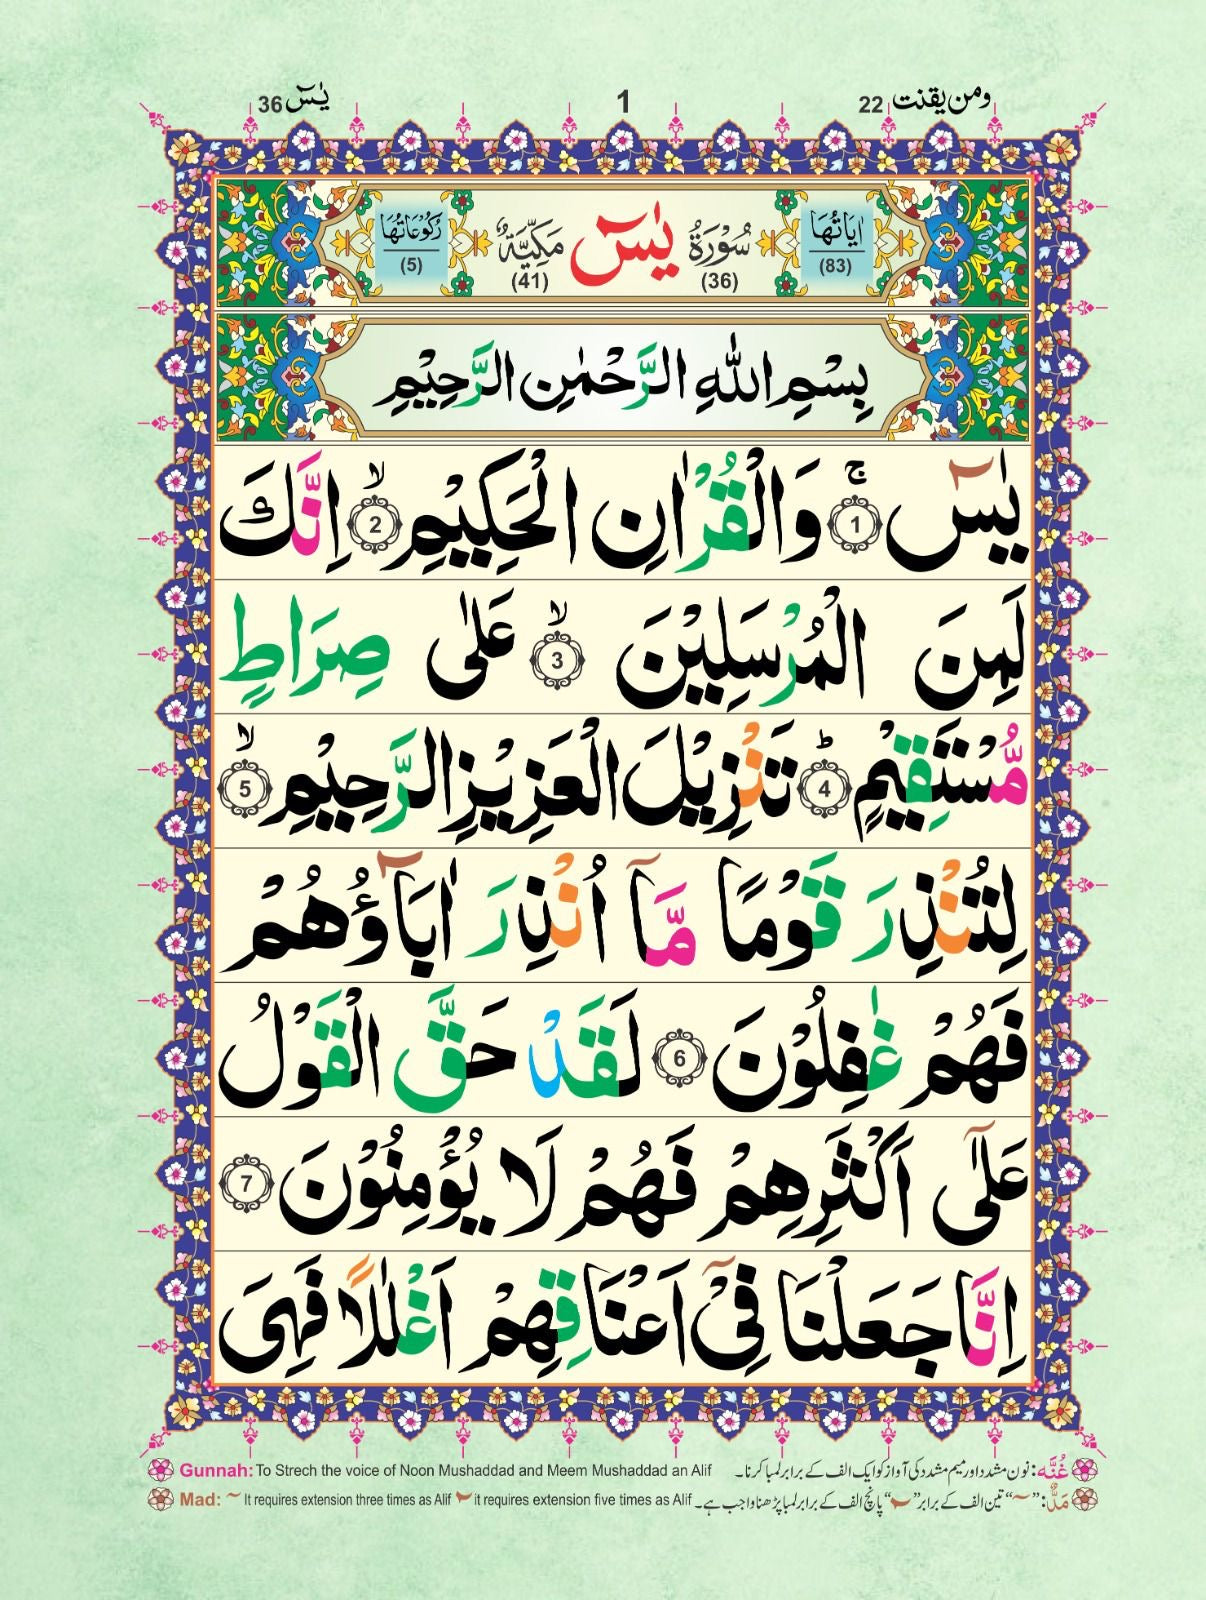 ومن یقنت 22
1
یٰسٓ 36
اٰیَاتُهَا (83)
سُوْرَةُ (36) یٰسٓ مَكِّیَّةٌ (41)
رُكُوْعَاتُهَا (5)
بِسْمِ اللّٰهِ الرَّحْمٰنِ الرَّحِیْمِ
یٰسٓ ۚ 1 وَالْقُرْاٰنِ الْحَكِیْمِ ۙ 2 اِنَّكَ
لَمِنَ الْمُرْسَلِیْنَ ۙ 3 عَلٰى صِرَاطٍ
مُّسْتَقِیْمٍ ؕ 4 تَنْزِیْلَ الْعَزِیْزِ الرَّحِیْمِ ۙ 5
لِتُنْذِرَ قَوْمًا مَّاۤ اُنْذِرَ اٰبَآؤُهُمْ
فَهُمْ غٰفِلُوْنَ 6 لَقَدْ حَقَّ الْقَوْلُ
عَلٰۤى اَكْثَرِهِمْ فَهُمْ لَا یُؤْمِنُوْنَ 7
اِنَّا جَعَلْنَا فِیْۤ اَعْنَاقِهِمْ اَغْلٰلًا فَهِیَ
Gunnah: To Strech the voice of Noon Mushaddad and Meem Mushaddad an Alif غُنَّہ: نون مشدد اور میم مشدد کی آواز کو ایک الف کے برابر لمبا کرنا۔
Mad: ۤ It requires extension three times as Alif ٓ it requires extension five times as Alif مَدّ: "ۤ" تین الف کے برابر "ٓ" پانچ الف کے برابر لمبا پڑھنا واجب ہے۔